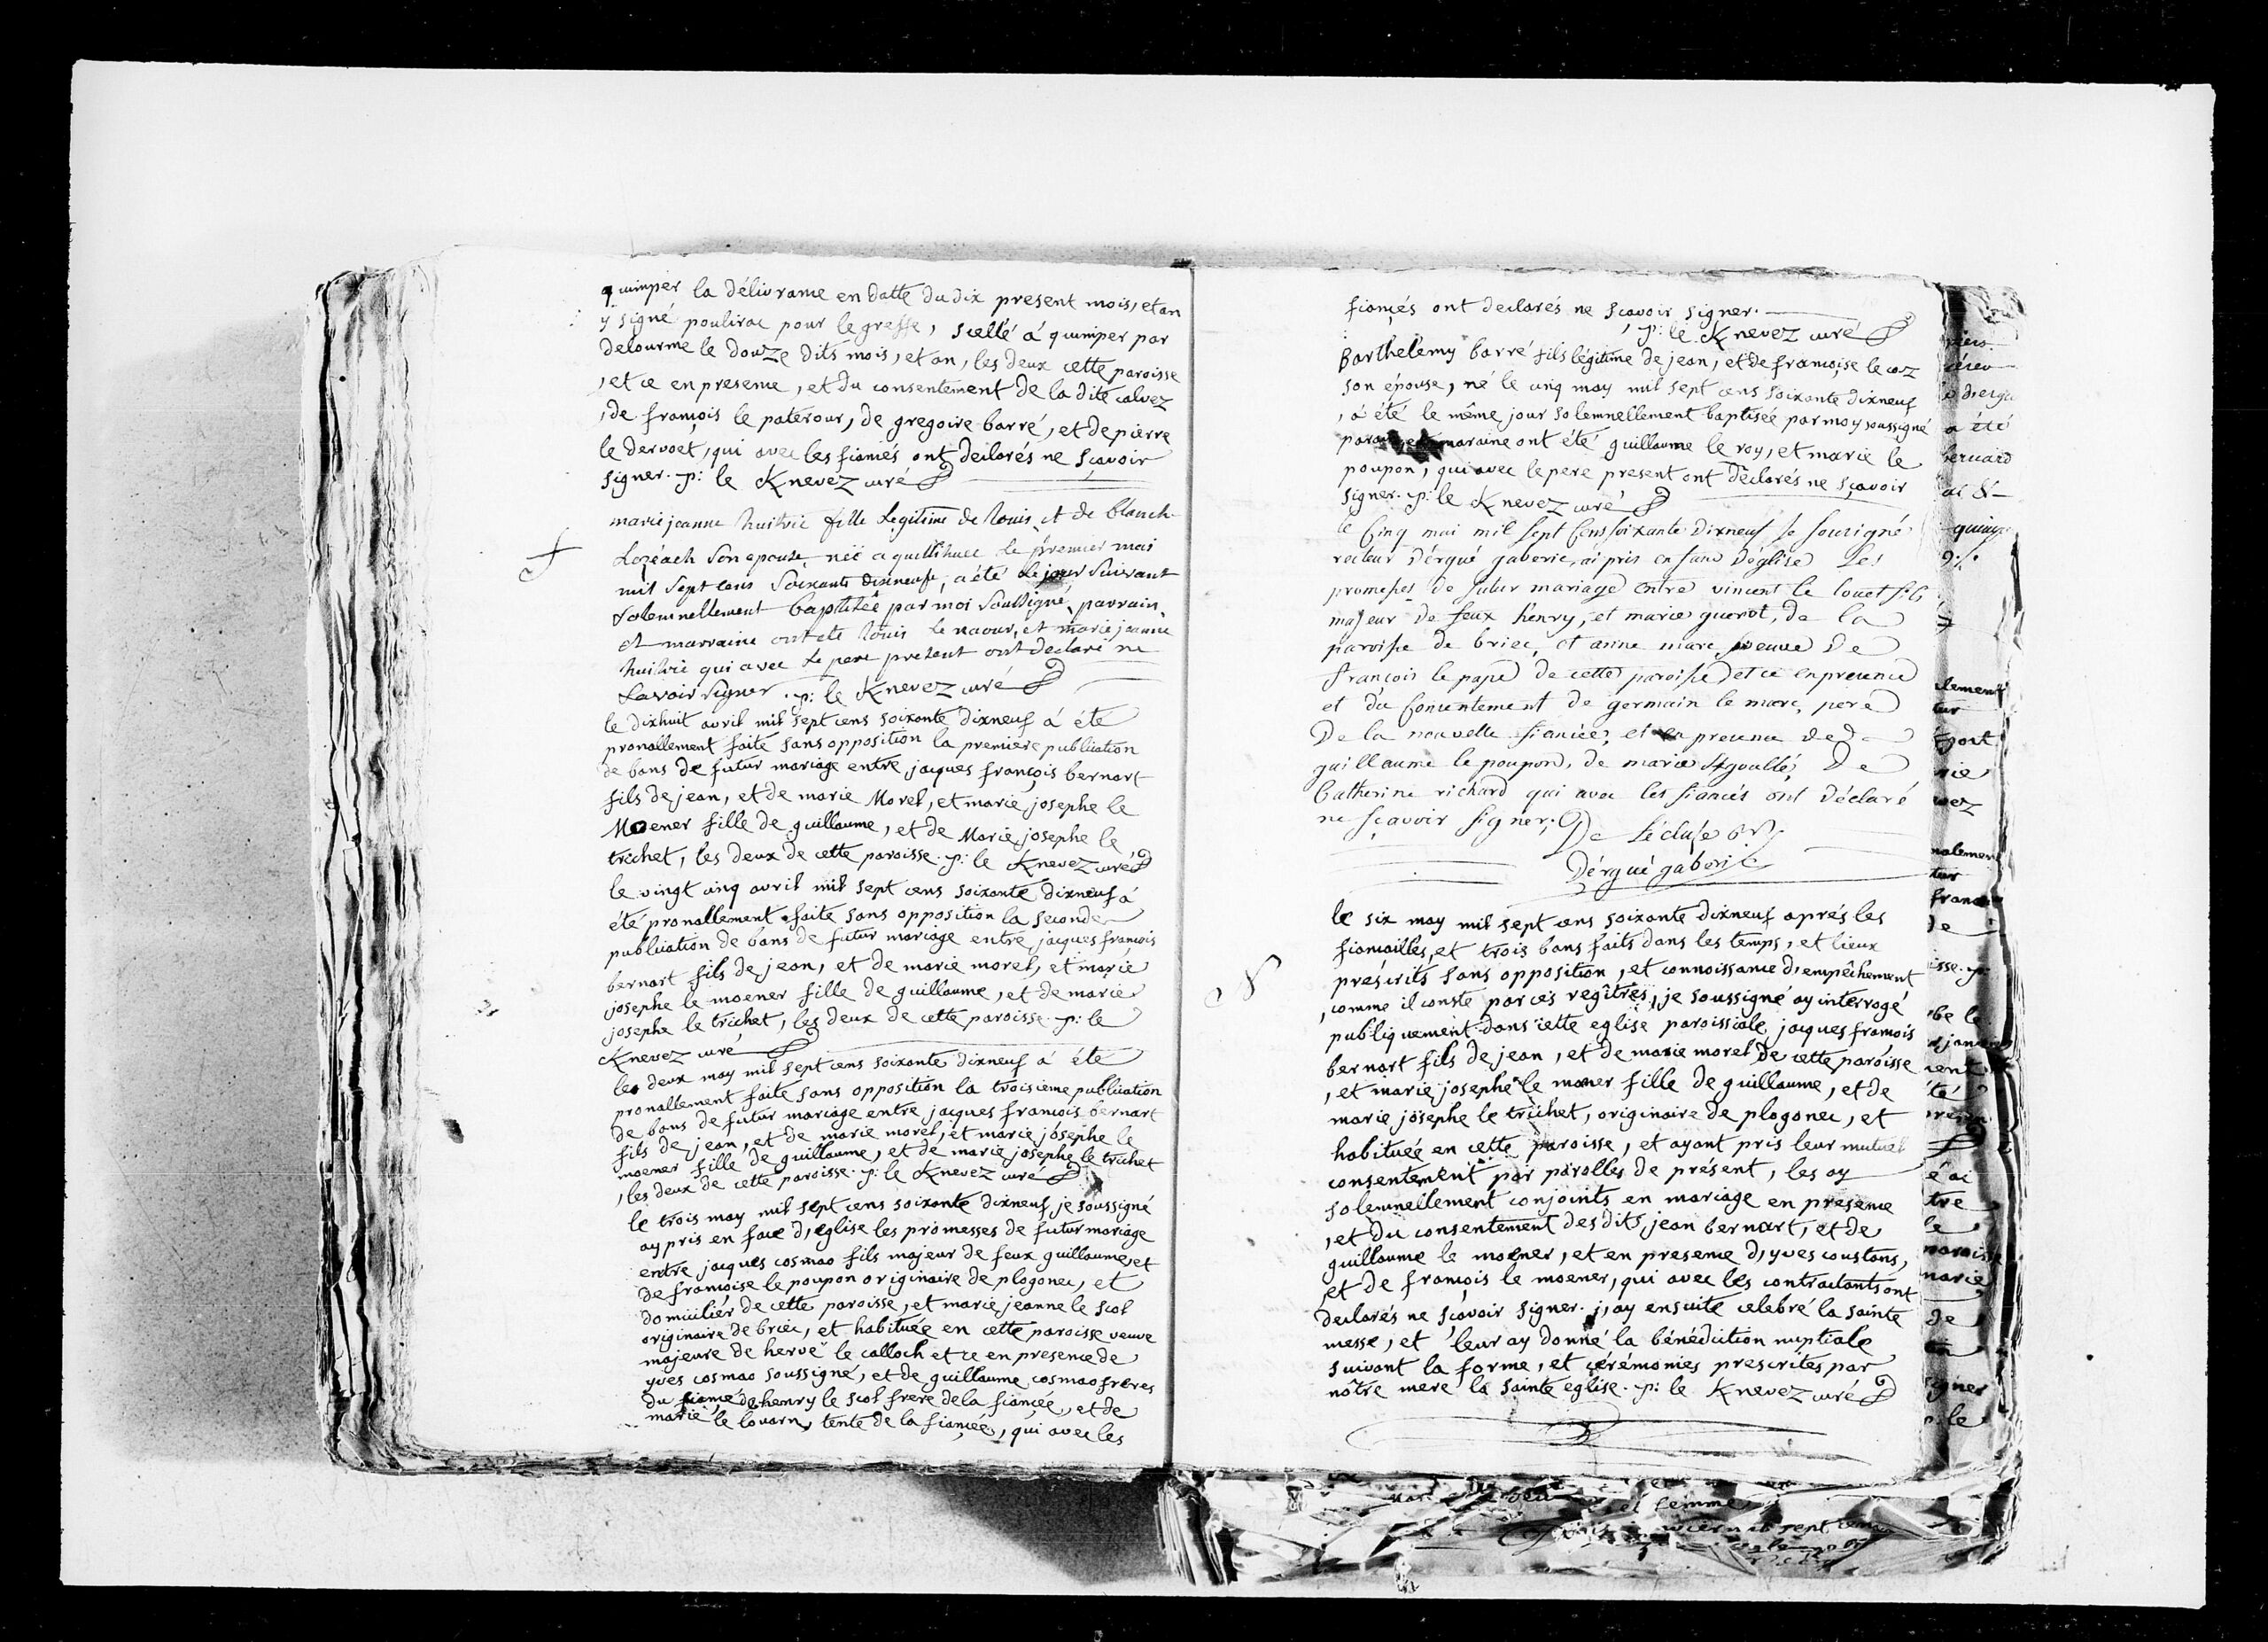 quimper la délivrance en datte du dix present mois, et an
y signé poulirac pour le greffe, scellé á quimper par
delourme le douze dits mois, et an, les deux cette paroisse
, et ce en presence, et du consentement de la dite calvez
, de françois le paterour, de gregoire barré, et de pierre
le dervoet, qui avec les fiancés ont declarés ne sçavoir
signer. p: le Knevez curé
marie jeanne huitric fille Legitime de Louis et de blanch
Lozéach son epouse née a quillihuec le premier mai
mil sept cens soixante dixneuf, a été le jour suivant
solemnellement baptisée par moi soussigné, parrain,
et marraine ont été Louis le naour, et marie jeanne
huitric qui avec le pere present ont declaré ne
savoir signer. p: le Knevez curé
le dixhuit avril mil sept cens soixante dixneuf á été
pronallement faite sans opposition la premiere publication
de bans de futur mariage entre jacques françois bernart
fils de jean, et de marie Morel, et marie josephe le
Moener fille de guillaume, et de Marie josephe le
trichet, les deux de cette paroisse. p: le Knevez curé
le vingt cinq avril mil sept cens soixante dixneuf á
été pronallement faite sans opposition la seconde
publication de bans de futur mariage entre jacques françois
bernart fils de jean, et de marie morel, et marie
josephe le moener fille de guillaume, et de marie
josephe le trichet, les deux de cette paroisse. p: le
Knevez curé
les deux may mil sept cens soixante dixneuf á été
pronallement faite sans opposition la troisieme publication
de bans de futur mariage entre jacques françois bernart
fils de jean, et de marie morel, et marie josephe le
moener fille de guillaume, et de marie josephe le trichet
, les deux de cette paroisse. p: le Knevez curé
le trois may mil sept cens soixante dixneuf je soussigné
ay pris en face d, eglise les promesses de futur mariage
entre jacques cosmao fils majeur de feux guillaume, et
de françoise le poupon originaire de plogonec, et
domicilier de cette paroisse, et marie jeanne le scol
originaire de briec, et habituée en cette paroisse veuve
majeure de hervé le calloch et ce en presence de
yves cosmao soussigné, et de guillaume cosmao freres
du fiancé de henry le scol frere de la fiancée, et de
marie le louarn, tente de la fiancée, qui avec les
fiancés ont declarés ne scavoir signer.
, p: le Knevez curé
Barthelemy barré fils légitime de jean, et de françoise le coz
son épouse, né le cinq may mil sept cens soixante dixneuf
, á été le même jour solemnellement baptiseé par moy soussigné
parain, et maraine ont été guillaume le roy, et marie le
poupon, qui avec le pere present ont declarés ne sçavoir
signer. p: le Knevez curé
le Cinq mai mil sept Cens soixante dixneuf je sousigné
recteur d'érgué gaberic, ai pris en face d'église Les
promesses de futur mariage entre vincent le louet fils
majeur de feux henry, et marie guenot, de la
paroisse de briec, et anne marc, veuve de
françois le pape de cette paroisse et ce en presence
et du Consentement de germain le marc, pere
De la nouvelle fiancée, et en presence de
guillaume le poupon, de marie De
Catherine richard qui avec les fiancés ont déclaré
ne sçavoir signer.
De Lécluse
Dérgué gaberic
le six may mil sept cens soixante dixneuf aprés les
fiancailles, et trois bans faits dans les temps, et lieux
préscrits sans opposition, et connoissance d, empêchement
, comme il conste par ces regîtres, je soussigné ay interrogé
publiquement dans cette eglise paroissiale jacques françois
bernart fils de jean, et de marie morel de cette paroisse
, et marie josephe le moener fille de guillaume, et de
marie josephe le trichet, originaire de plogonec, et
habituée en cette paroisse, et ayant pris leur mutuel
consentement par parolles de présent, les ay
solemnellement conjoints en mariage en presence
, et du consentement des dits jean bernart, et de
guillaume le moener, et en presence d, yves coustans,
et de françois le moener, qui avec les contractants ont
declarés ne sçavoir signer. j, ay ensuite celebré la sainte
messe, et leur ay donné la bénédiction nuptiale
suivant la forme, et cérémonies prescrites par
nôtre mere la sainte eglise. p: le Knevez curé